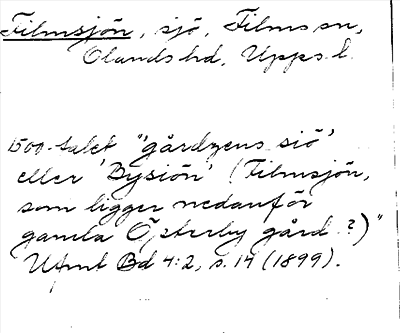 Filmsjön, sjö, Films sn,
Olands hd, Upps. l.
1500-talet "'gårdzens siö'
eller 'Bysiön' (Filmsjön,
som ligger nedanför
gamla Österby gård?)"
Ufmt Bd 4:2, s. 14 (1899).